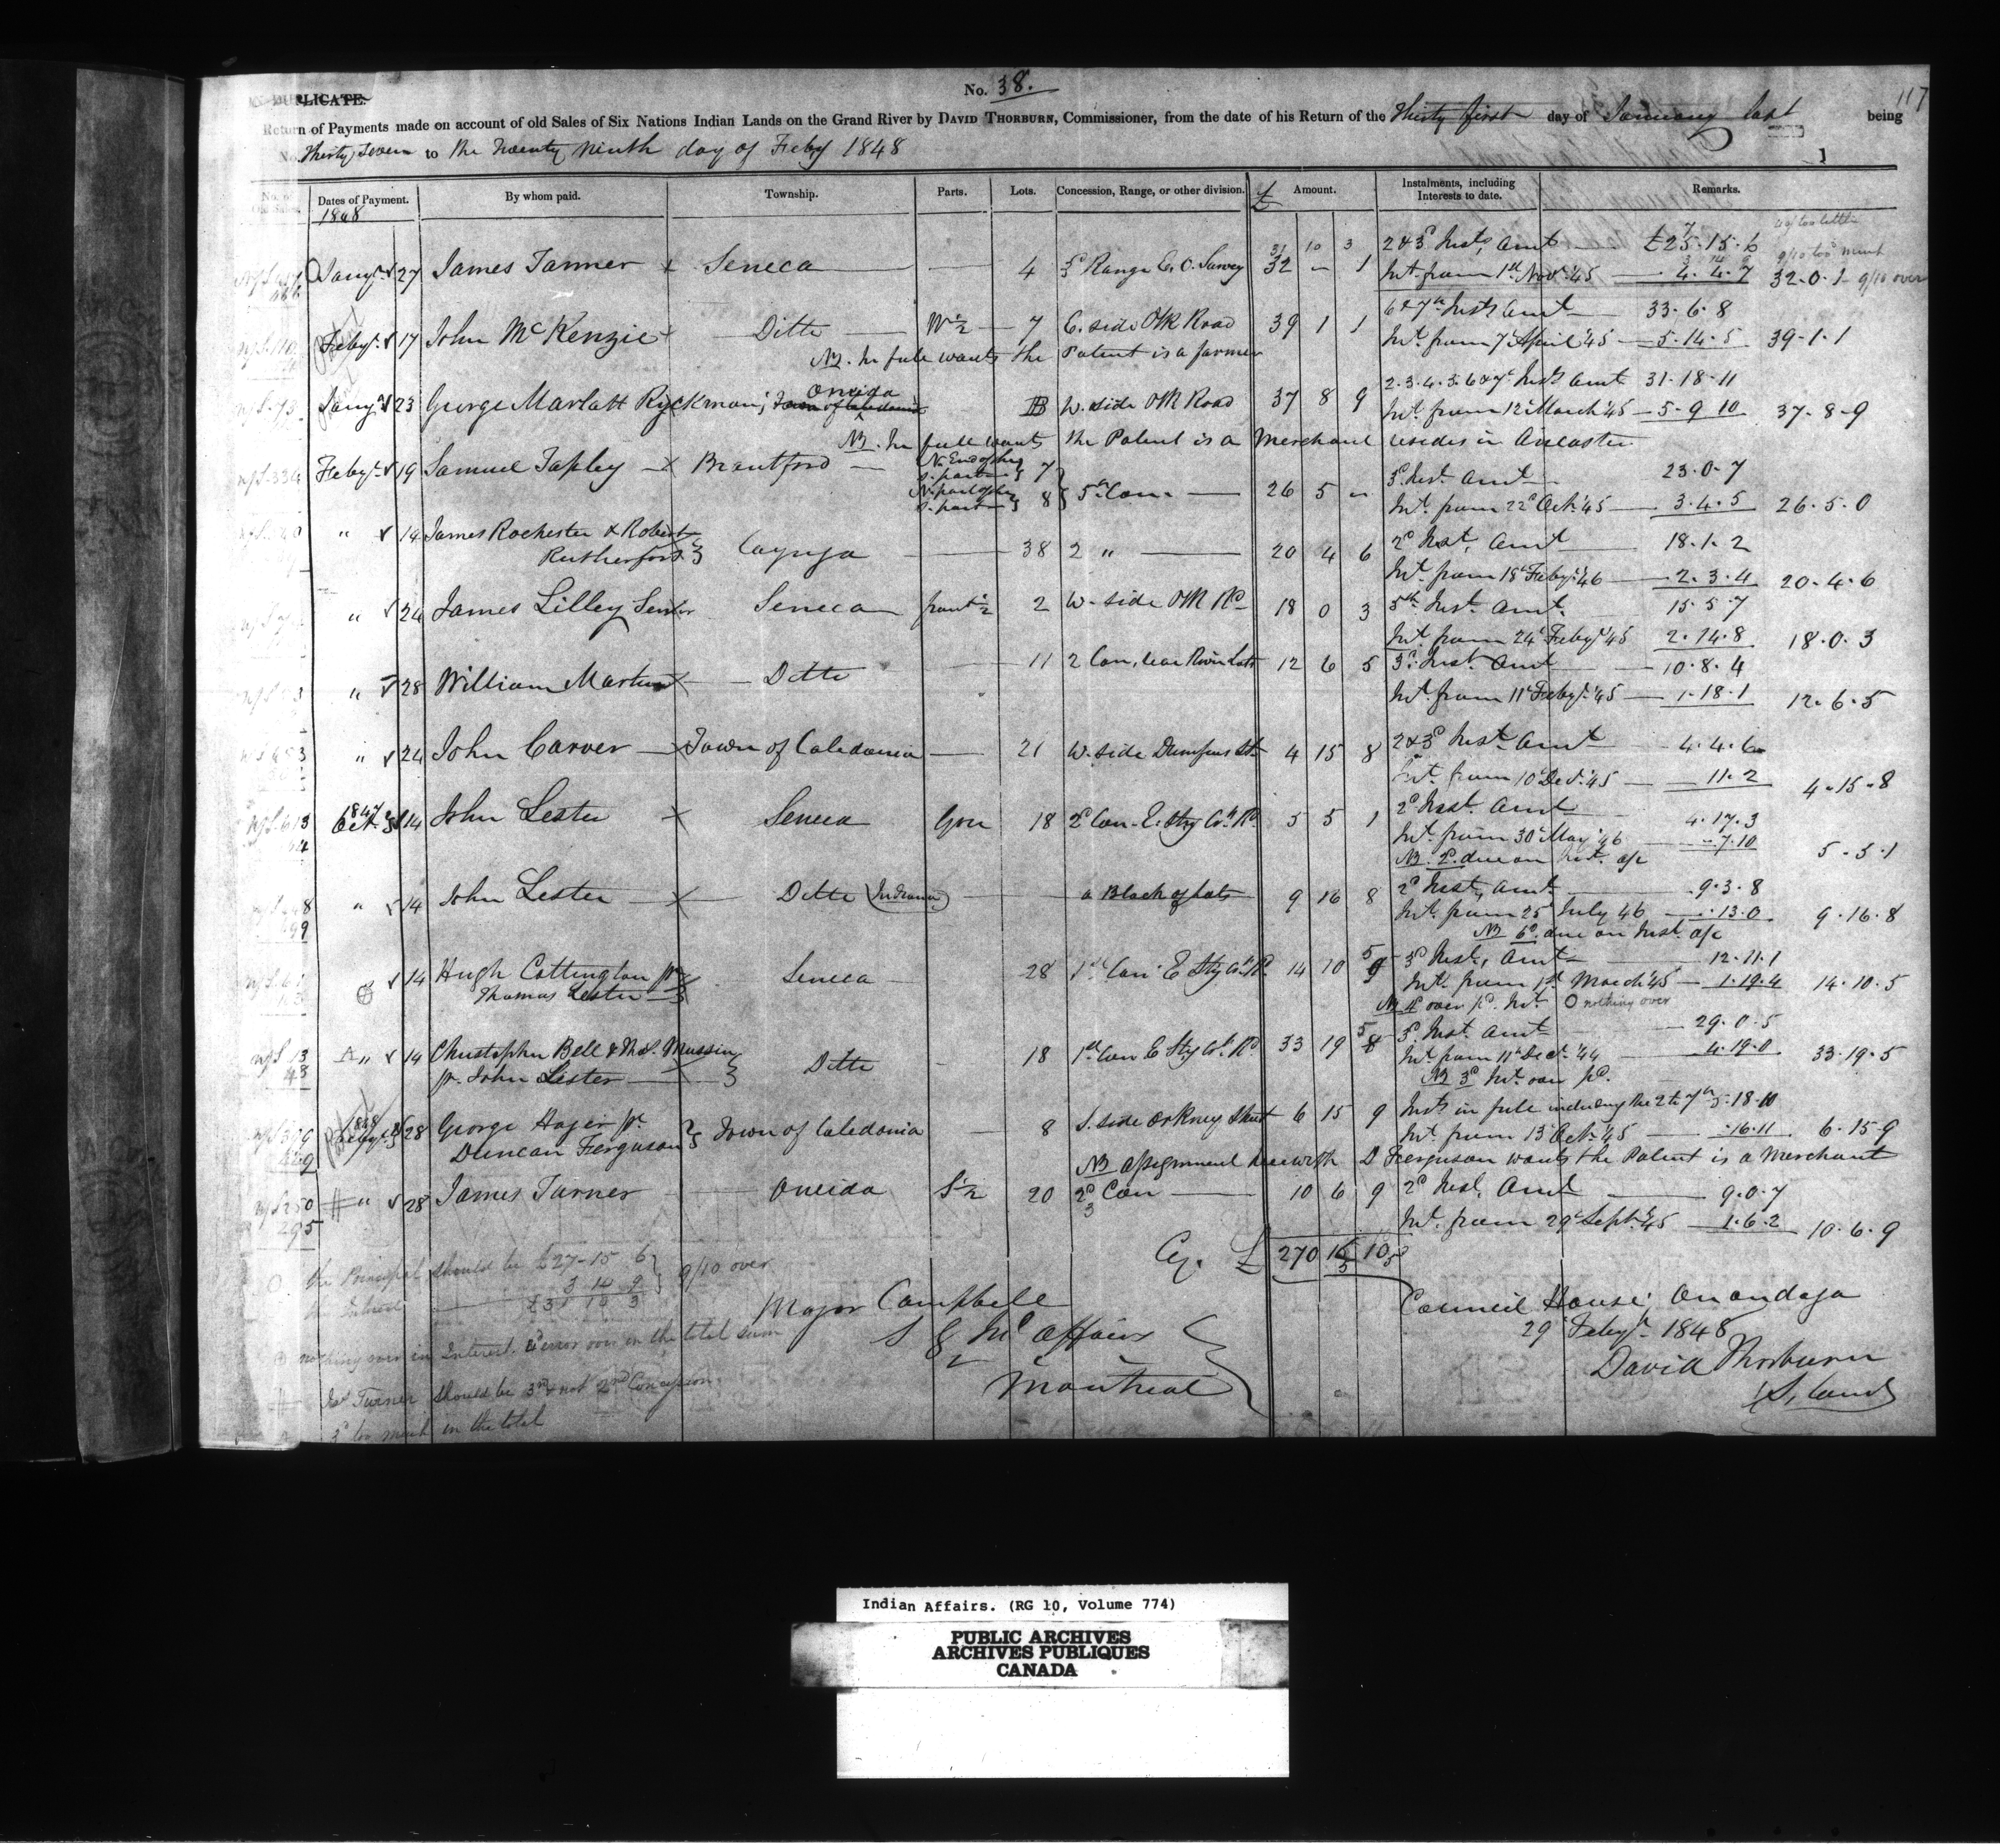 No. 38.
117
DUPLICATE.
Return of Payments made on account of old Sales of Six Nations Indian Lands on the Grand River by DAVID THORBURN, Commissioner, from the date of his Return of the Thirty first day of January last being
No. Thirty Seven to the Twenty ninth day of Feby 1848
No. of Old Sales. Dates of Payment. By whom paid. Township. Parts. Lots. Concession, Range, or other division. £ Amount. Instalments, including Interests to date. Remarks.
1848
31 10 3 2 & 3d Insts, Amt £25.15.6
Jany 27 James Tanner Seneca 4 3d Range E. O. Survey 32 - 1 Int. from 1st Novr. 45 4.4.7 32.0.1 9/10 over
6 & 7th Insts Amt 33.6.8
Feby 17 John McKenzie Ditto W 1/2 7 E. side P R Road 39 1 1 Int. from 7 April 45 5.14.5 39.1.1
NB. In full wants the Patent is a farmer
2.3.4.5.6 & 7th Insts Amt 31.18.11
Jany 23 George Marlatt Ryckman; Oneida Town of Caledonia W. side P R Road 37 8 9 Int. from 12 March 45 5.9.10 37-8-9
NB. In full wants the Patent is a Merchant resides in Ancaster
NS. 334 Feby 19 Samuel Tapley Brantford N. End of the S. part 7 3d Inst. Amt 23.0.7
N. part of the S. part 8 5th Con. 26 5 " Int. from 22d Oct. 45 3.4.5 26.5.0
" 14 James Rochester & Robert Rutherford Cayuga 38 2 " 20 4 6 2d Inst, Amt 18.1.2
Int. from 18 Feby. 46 2.3.4 20.4.6
" 24 James Lilley Senior Seneca front 1/2 2 W. side P R Rd 18 0 3 5th Inst. Amt. 15.5.7
Int. from 24 Feby 45 2.14.8 18.0.3
" 28 William Martin Ditto 11 2 Con, rear River Lots 12 6 5 3d Inst. Amt 10.8.4
Int. from 11 Feby. 45 1.18.1 12.6.5
" 24 John Carver Town of Caledonia 21 W. side Dumfries St. 4 15 8 2 & 3d Inst. Amt 4.4.6
Int. from 10 Decr. 45 11.2 4.15.8
1847 Oct. 14 John Lester Seneca Gore 18 2d Con. E. Stg Ct. Rd. 5 5 1 2d Inst. Amt 4.17.3
Int. from 30 May 46 7.10
NB. 2d. due on Int. a/c 5.5.1
" 14 John Lester Ditto (Indiana) a Block of Lots 9 16 8 2d Inst, Amt 9.3.8
Int. from 25 July 46 13.0 9.16.8
NB 6d. due on Inst. a/c
14 Hugh Cottington pr Thomas Lester Seneca 28 1st Con. E Stg Ct. Rd. 14 10 5 3d Inst, Amt 12.11.1
Int. from 1st March 45 1.19.4 14.10.5
NB 4d over pd. Int. O nothing over
" 14 Christopher Bell & Thos. Mussin pr. John Lester Ditto 18 1st Con E Stg Ct. Rd 33 19 5 3d. Inst. Amt 29.0.5
Int. from 11 Decr. 44 4.19.0 33.19.5
NB 3d Int. over pd.
1848 Feby 28 George Hager pr. Duncan Ferguson Town of Caledonia 8 S. side Orkney Street 6 15 9 Insts in full including the 2 to 7th 5.18.10
Int. from 13 Oct. 45 16.11 6.15.9
NB assignment herewith D Ferguson wants the Patent is a Merchant
NS 250 295 # " 28 James Turner Oneida S 1/2 20 2d Con 3 10 6 9 2d Inst, Amt 9.0.7
Int. from 29 Sept. 45 1.6.2 10.6.9
Cy. £ 270 10
O the Principal should be £27-15 6
the Interest 3 14 9 9/10 over
£31 10 3
⊕ nothing over in Interest. 4d error over in the total sum
# Jas Turner should be 3rd & not 2nd Concession
3d too much in the total
Major Campbell
S G In. Affairs
Montreal
Council House, Onondaga
29 Feby. 1848
David Thorburn
Indian Affairs. (RG 10, Volume 774)
PUBLIC ARCHIVES
ARCHIVES PUBLIQUES
CANADA